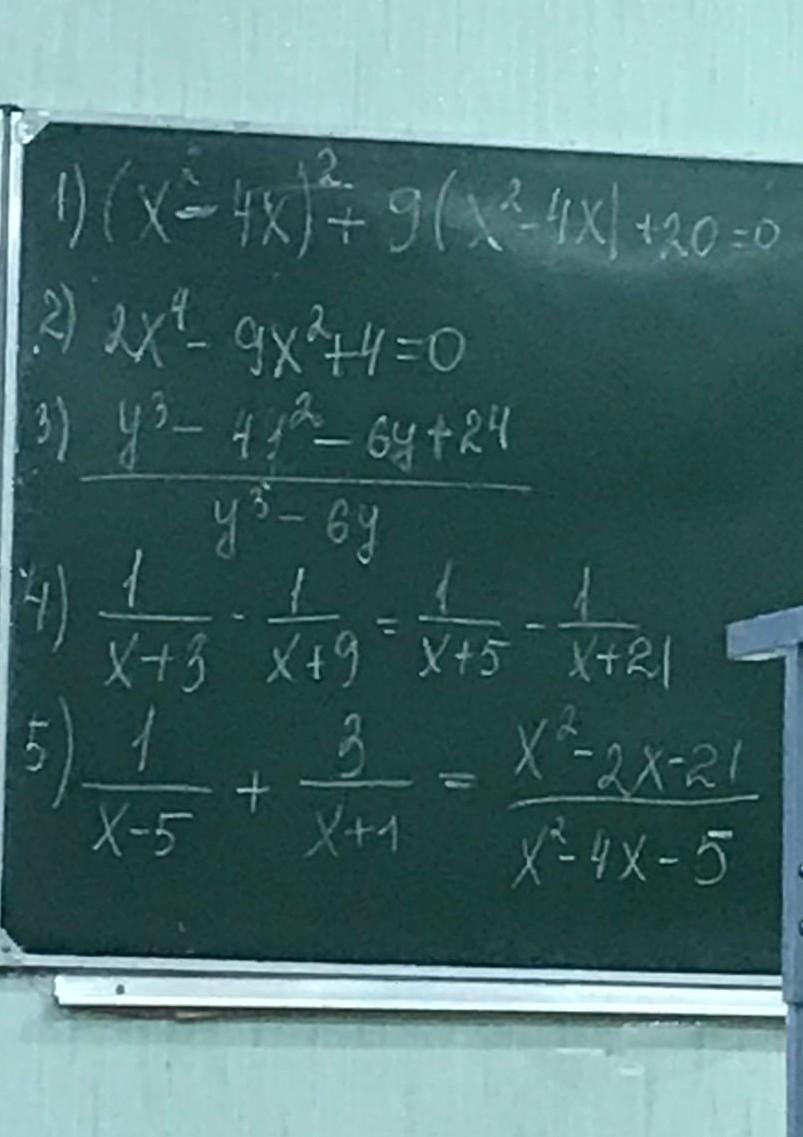 1) (x² - 4x)² + 9(x² - 4x) + 20 = 0
2) 2x⁴ - 9x² + 4 = 0
3) (y³ - 4y² - 6y + 24) / (y³ - 6y)
4) 1/(x+3) - 1/(x+9) = 1/(x+5) - 1/(x+21)
5) 1/(x-5) + 3/(x+1) = (x² - 2x - 21)/(x² - 4x - 5)